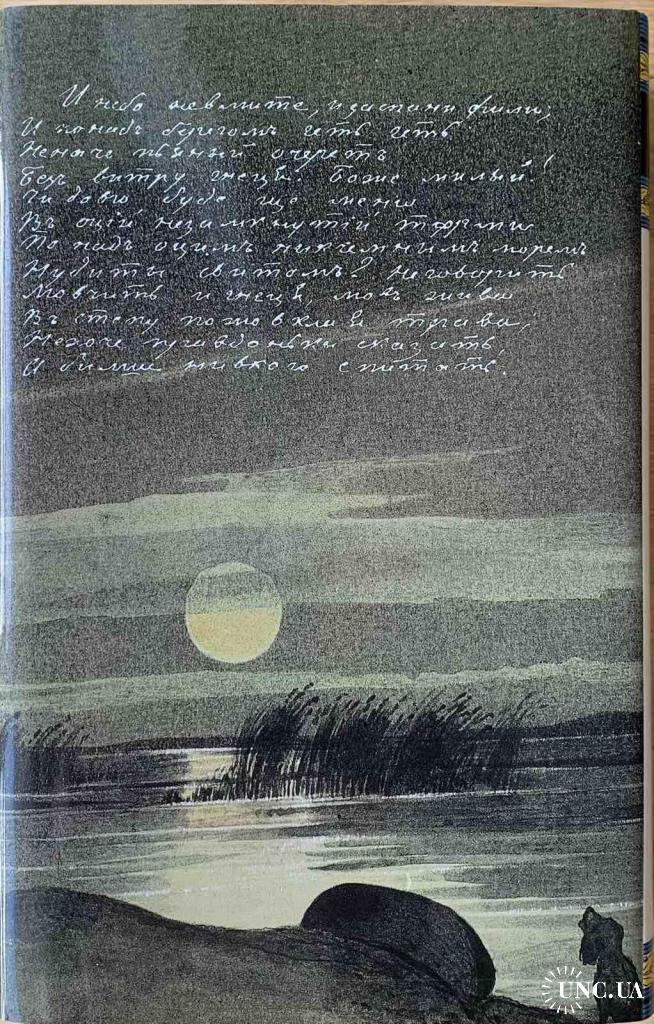 И небо невмите, и заспани фили;
И понадъ берегомъ геть геть
Неначе пьяный очеретъ
Безъ витру гнеця. Боже милый!
Чи довго буде ще мени
Въ оцій незамкнутій тюрми
По надъ оцимъ никчемнимъ моремъ
Нудиты свитомъ? Неговорить
Мовчить и гнеця, мовъ жива
Въ степу пожовклая трава;
Нехоче правдоньки сказать,
А билше нивкого спитать.
UNC.UA